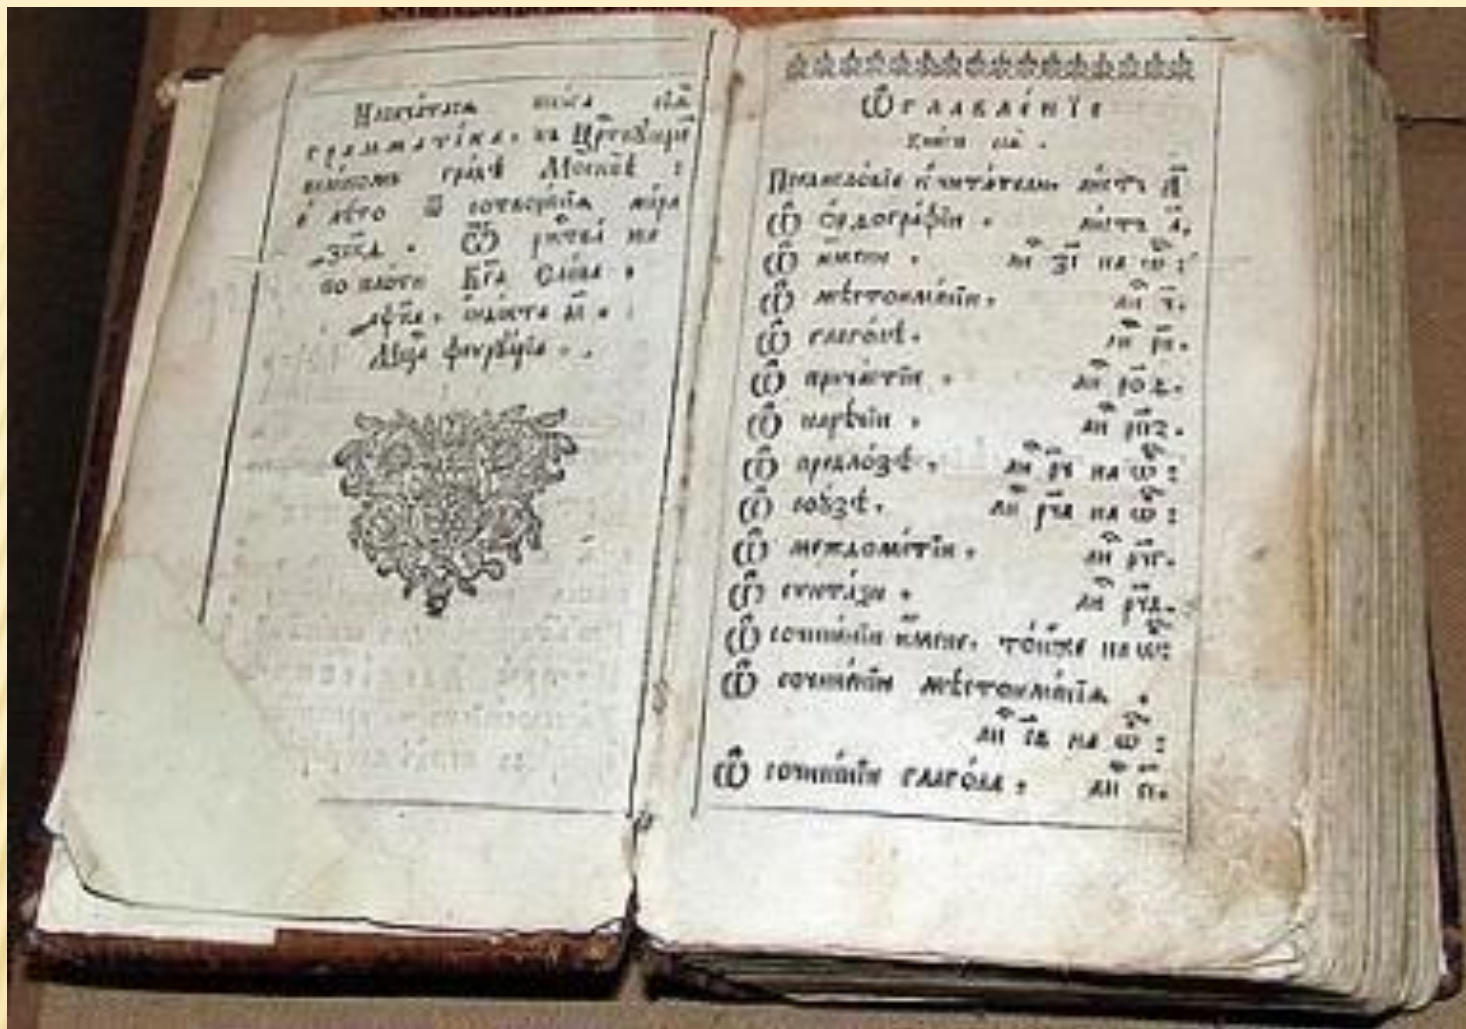 Напеча́тасѧ кни́га сїѧ̀
грамматі́ка, въ Црⷭ҇твꙋ́ющемъ
вели́комъ гра́дѣ Москвѣ̀ :
в лѣ́то ѿ сотворе́нїѧ мі́ра
Ѿ ржⷭ҇тва̀ же
по пло́ти Бг҃а Сло́ва ,
і҆ндїкта д҃і ,
Мцⷭ҇а феврꙋа́рїа .
Ѡ҆главле́нїе
Кни́ги сеѧ̀ .
Предисло́вїе к̾ чита́телю, ли́стъ а҃
Ѡ҆ ѻ҆рѳогра́фїи , ли́стъ
Ѡ҆ и҆́мени , ли зі҃ на ѡ҆б :
Ѡ҆ мѣстоиме́нїи , ли ч҃ .
Ѡ҆ глаго́лѣ , ли
Ѡ҆ прича́стїи , ли ро҃д .
Ѡ҆ нарѣ́чїи , ли рп҃з .
Ѡ҆ предло́зѣ , ли рч҃ на ѡ҆б :
Ѡ҆ сою́зѣ , ли рч҃а на ѡ҆б :
Ѡ҆ междоме́тїи , ли рч҃г .
Ѡ҆ сѵнта́ѯи , ли рч҃д .
Ѡ҆ сочине́нїи и҆́мене, то́йже на ѡ҆б :
Ѡ҆ сочине́нїи мѣстоиме́нїѧ ,
ли на ѡ҆б :
Ѡ҆ сочине́нїи глаго́ла , ли